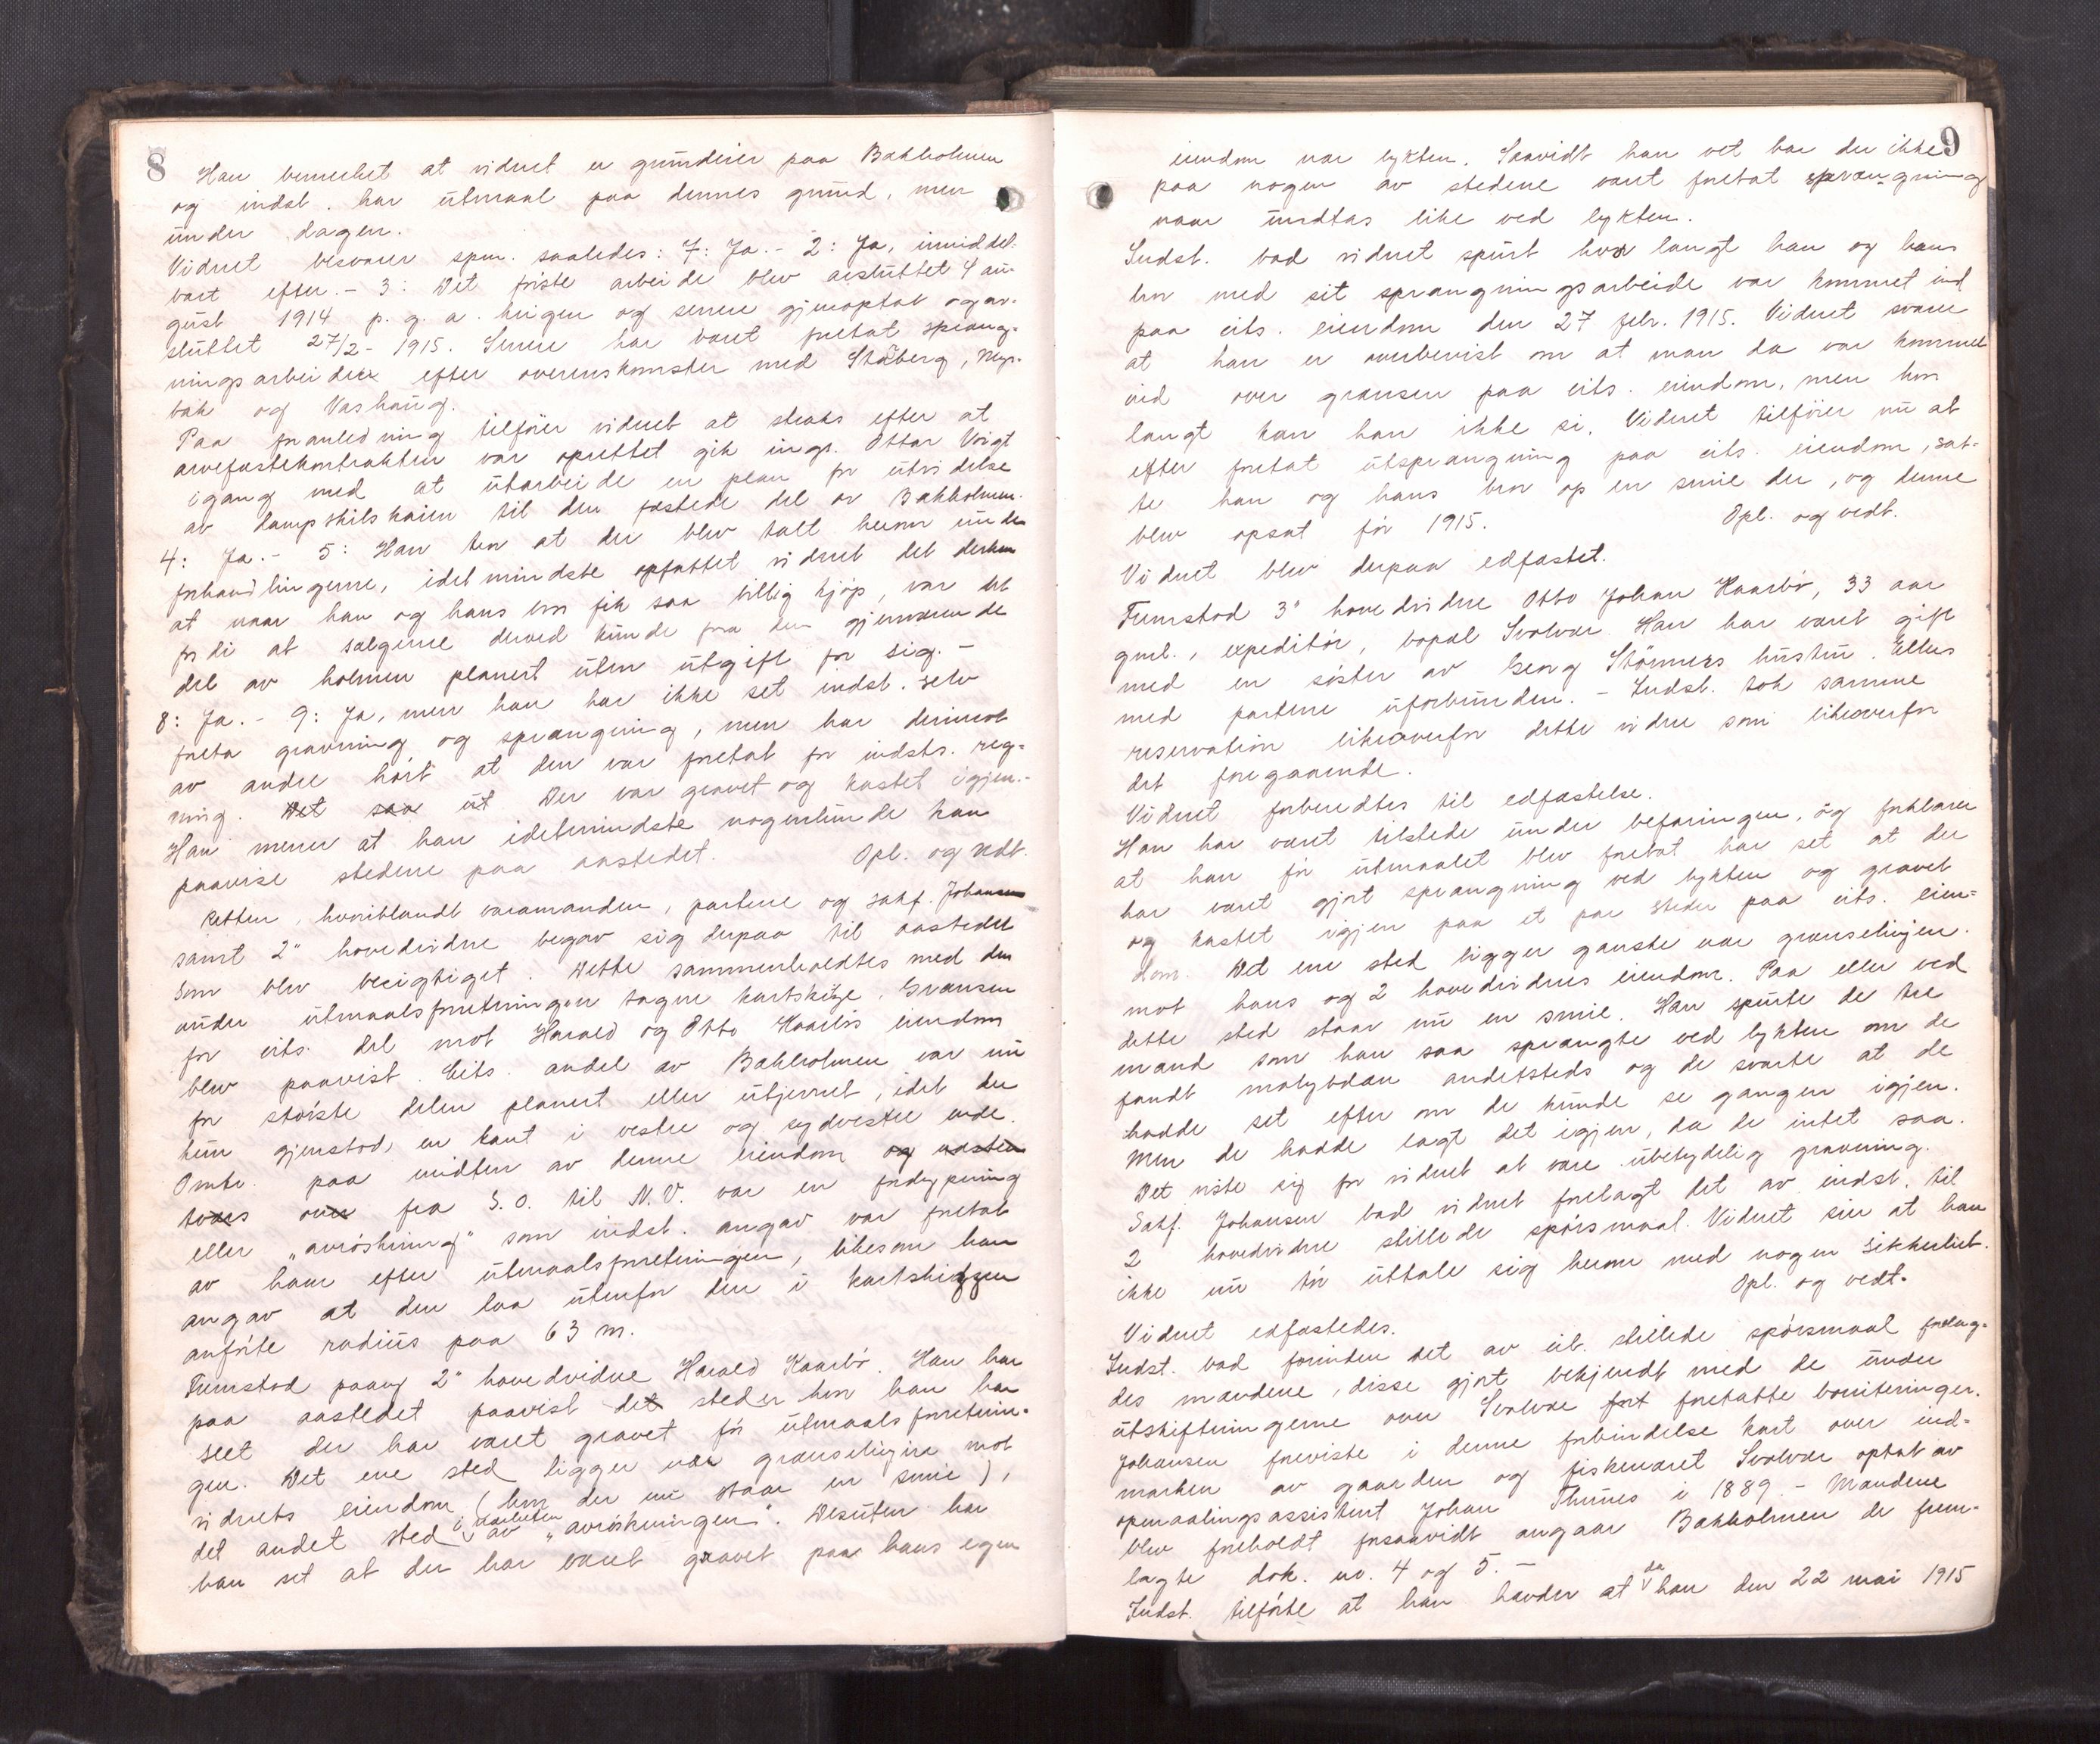 8
Han bemerket at vidnet er grundeier paa Bakholmen
og indst. har utmaal paa dennes grund, men
under dagen.
Vidnet besvarer spm. saaledes: 7: Ja. - 2: Ja, umiddel-
bart efter. - 3: Det første arbeide blev avsluttet 4 au-
gust 1914 p. g. a. krigen og senere gjenoptat og av-
sluttet 27/2 - 1915. Senere har været foretat spræng-
ningsarbeider efter overenskomster med Staberg, Myr-
bak og Vashaug.
Paa foranledning tilføier vidnet at straks efter at
arvefæstekontrakten var oprettet gik ingr. Ottar Voigt
igang med at utarbeide en plan for utvidelse
av dampskibskaien til den fæstede del av Bakholmen.
4: Ja. - 5: Han tror at der blev talt herom under
forhandlingerne, idetmindste opfattet vidnet det derhen
at naar han og hans bror fik saa billig kjøp, var det
fordi at sælgerne derved kunde faa den gjenværende
del av holmen planert uten utgift for sig. -
8: Ja. - 9: Ja, men han har ikke set indst. selv
foreta gravning og sprængning, men har derimot
av andre hørt at den var foretat for indsts. reg-
ning. Det saa ut Der var gravet og kastet igjen. -
Han mener at han idetmindste nogenlunde kan
paavise stederne paa aastedet. Opl. og vedt.
Retten, hvoriblandt varamanden, parterne og sakf. Johansen
samt 2" hovedvidne begav sig derpaa til aastedet
som blev besigtiget. Dette sammenholdtes med den
under utmaalsforretningen tagne kartskisse. Grænsen
for cits. del mot Harald og Otto Kaarbøs eiendom
blev paavist. Cits. andel av Bakholmen var nu
for største delen planert eller utjevnet, idet der
kun gjenstod en kant i vestre og sydvestre ende.
Omtr. paa midten av denne eiendom og næsten
tvers over fra S.O. til N.V. var en fordypning
eller "avrøskning" som indst. angav var foretat
av ham efter utmaalsforretningen, likesom han
angav at den laa utenfor den i kartskizzen
anførte radius paa 63 m.
Fremstod paany 2" hovedvidne Harald Kaarbø. Han har
paa aastedet paavist det steder hvor han har
seet der har været gravet før utmaalsforretnin-
gen. Det ene sted ligger nær grænselinjen mot
vidnets eiendom (hvor der nu staar en smie),
det andet sted i nærheten av "avrøskningen". Desuten har
han set at der har været gravet paa hans egen
9
eiendom nær lykten. Saavidt han vet har der ikke
paa nogen av stedene været foretat sprængning
naar undtas like ved lykten.
Indst. bad vidnet spurt hvor langt han og hans
bror med sit sprængningsarbeide var kommet ind
paa cits. eiendom den 27 febr. 1915. Vidnet svarer
at han er overbevist om at man da var kommet
ind over grænsen paa cits. eiendom, men hvor
langt kan han ikke si. Vidnet tilføier nu at
efter foretat utsprængning paa cits. eiendom, sat-
te han og hans bror op en smie der, og denne
blev opsat før 1915. Opl. og vedt.
Vidnet blev derpaa edfæstet.
Fremstod 3" hovedvidne Otto Johan Kaarbø, 33 aar
gml., expeditør, bopæl Svolvær. Han har været gift
med en søster av Georg Størmers hustru. Ellers
med parterne uforbunden. - Indst. tok samme
reservation likeoverfor dette vidne som likeoverfor
det foregaaende.
Vidnet forberedtes til edfæstelse.
Han har været tilstede under befaringen, og forklarer
at han før utmaalet blev foretat har set at der
har været gjort sprængning ved lykten og gravet
og kastet igjen paa et par steder paa cits. eien-
dom. Det ene sted ligger ganske nær grænselinjen
mot hans og 2 hovedvidnes eiendom. Paa eller ved
dette sted staar nu en smie. Han spurte de tre
mænd som han saa sprængte ved lykten om de
fandt molybdæn andetsteds og de svarte at de
hadde set efter om de kunde se gangen igjen.
Men de hadde lagt det igjen, da de intet saa.
Det viste sig for vidnet at være ubetydelig gravning.
Sakf. Johansen bad vidnet forelagt det av indst. til
2 hovedvidne stillede spørsmaal. Vidnet sier at han
ikke nu tør uttale sig herom med nogen sikkerhet.
Opl. og vedt.
Vidnet edfæstedes.
Indst. bad foruten det av cit. stillede spørsmaal forelag-
des mændene, disse gjort bekjendt med de under
utskiftningerne over Svolvær fort foretatte boniteringer.
Johansen foreviste i denne forbindelse kart over ind-
marken av gaarden og fiskeværet Svolvær optat av
opmaalingsassistent Johan Thrues i 1889. - Mændene
blev foreholdt forsaavidt angaar Bakholmen de frem-
lagte dok. nr. 4 og 5. -
Indst. tilførte at han hævder at da han den 22 mai 1915